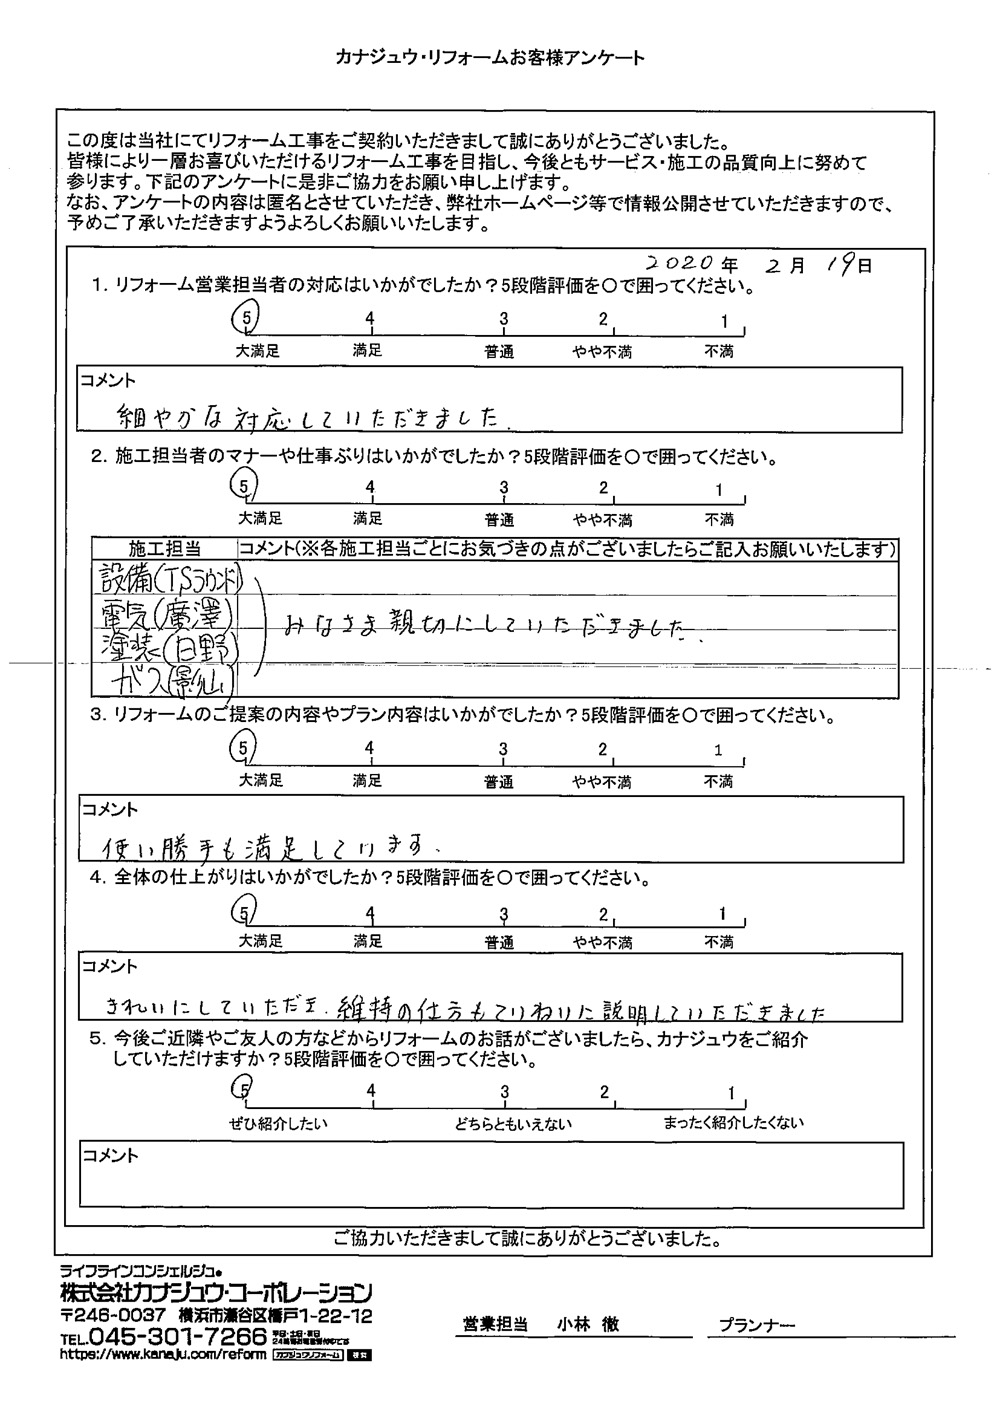 カナジュウ・リフォームお客様アンケート
この度は当社にてリフォーム工事をご契約いただきまして誠にありがとうございました。
皆様により一層お喜びいただけるリフォーム工事を目指し、今後ともサービス・施工の品質向上に努めて
参ります。下記のアンケートに是非ご協力をお願い申し上げます。
なお、アンケートの内容は匿名とさせていただき、弊社ホームページ等で情報公開させていただきますので、
予めご了承いただきますようよろしくお願いいたします。
2020年 2月 19日
1. リフォーム営業担当者の対応はいかがでしたか？5段階評価を〇で囲ってください。
5 4 3 2 1
大満足 満足 普通 やや不満 不満
コメント
細やかな対応していただきました.
2. 施工担当者のマナーや仕事ぶりはいかがでしたか？5段階評価を〇で囲ってください。
5 4 3 2 1
大満足 満足 普通 やや不満 不満
施工担当 コメント(※各施工担当ごとにお気づきの点がございましたらご記入お願いいたします)
設備(TSラウンド)
電気(廣澤) みなさま親切にしていただきました.
塗装(日野)
ガス(影山)
3. リフォームのご提案の内容やプラン内容はいかがでしたか？5段階評価を〇で囲ってください。
5 4 3 2 1
大満足 満足 普通 やや不満 不満
コメント
使い勝手も満足しています.
4. 全体の仕上がりはいかがでしたか？5段階評価を〇で囲ってください。
5 4 3 2 1
大満足 満足 普通 やや不満 不満
コメント
きれいにしていただき. 維持の仕方もていねいに説明していただきました
5. 今後ご近隣やご友人の方などからリフォームのお話がございましたら、カナジュウをご紹介
していただけますか？5段階評価を〇で囲ってください。
5 4 3 2 1
ぜひ紹介したい どちらともいえない まったく紹介したくない
コメント
ご協力いただきまして誠にありがとうございました。
ライフラインコンシェルジュ®
株式会社カナジュウ・コーポレーション
〒246-0037 横浜市瀬谷区橋戸1-22-12
TEL.045-301-7266
https://www.kanaju.com/reform カナジュウリフォーム 検索
営業担当 小林 徹 プランナー